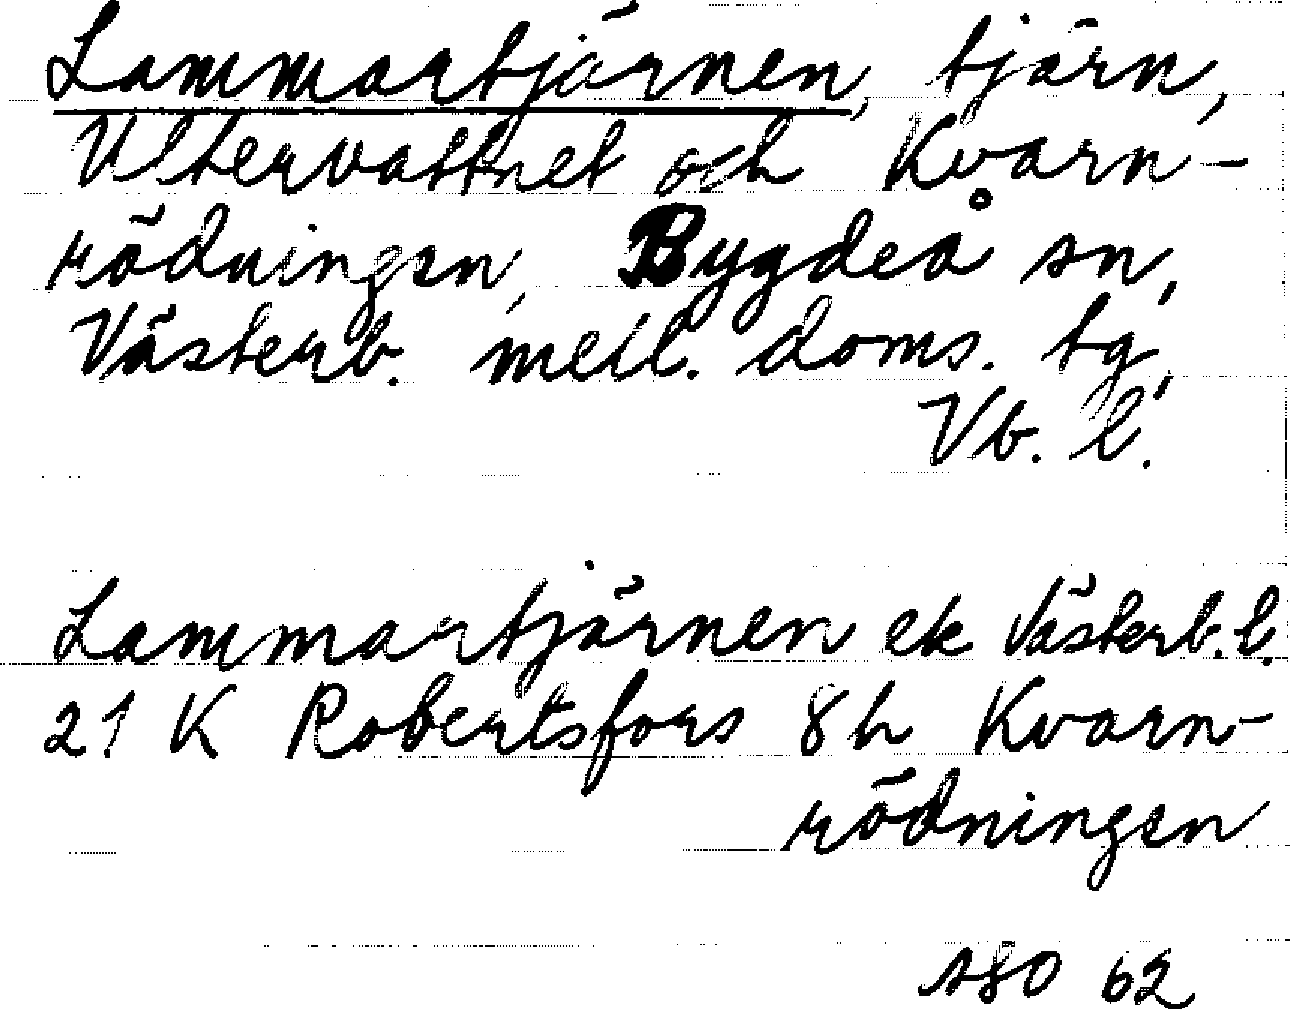 Lammartjärnen, tjärn,
Ultervattnet och Kvarn-
rödningen, Bygdeå sn,
Västerb. mell. doms. tg,
Vb. l.
Lammartjärnen ek Västerb. l.
21 K Robertsfors 8h Kvarn-
rödningen
62